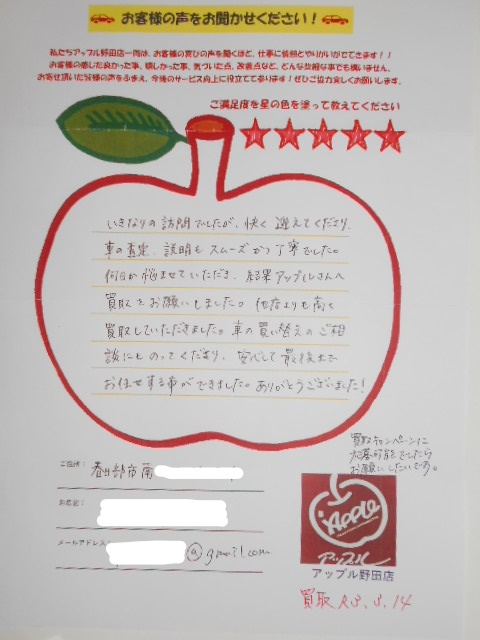 お客様の声をお聞かせください！
私たちアップル野田店一同は、お客様の喜びの声を聞くほど、仕事に情熱とやりがいがでてきます！！
お客様の感じた良かった事、嬉しかった事、気づいた点、改善点など、どんな些細な事でも構いません。
お寄せ頂いた皆様の声をふまえ、今後のサービス向上に役立てて参ります！ぜひご協力宜しくお願いします。
ご満足度を星の色を塗って教えてください
いきなりの訪問でしたが、快く迎えてくださり、
車の査定、説明もスムーズかつ丁寧でした。
何日か悩ませていただき、結果アップルさんへ
買取をお願いしました。他店よりも高く
買取していただきました。車の買い替えのご相
談にものってくださり、安心して最後まで
お任せする事ができました。ありがとうございました！
買取キャンペーンに
応募可能でしたら
お願いしたいです。
ご住所：春日部市南
お名前：
メールアドレス：@gmail.com
Apple
アップル
アップル野田店
買取 R3.3.14